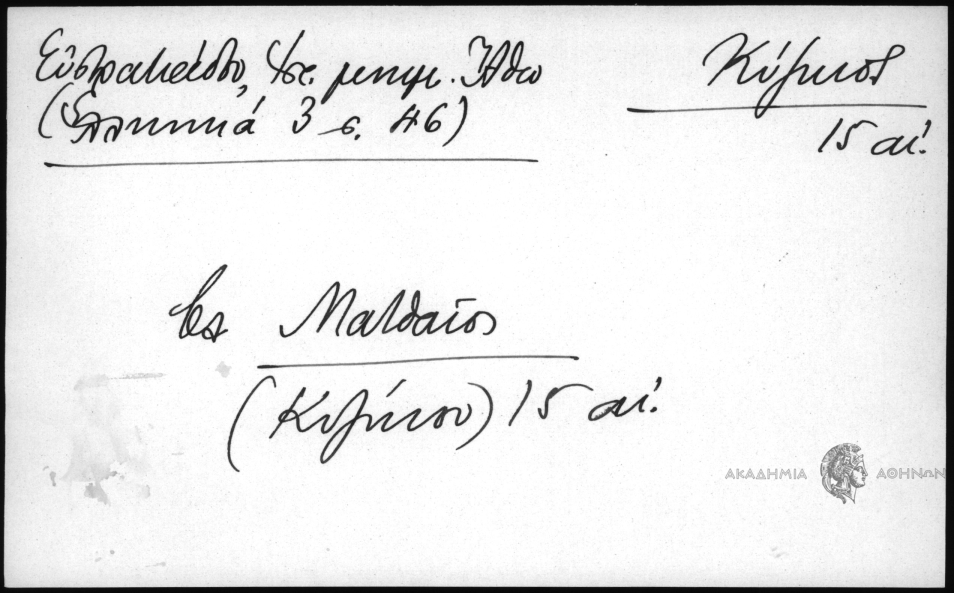 Εὐστρατιάδου, Ἱστ. μνημ. Ἄθω
(Ἑλληνικά 3 σ. 46)
Κύζικος
15 αἰ.
Ματθαῖος
(Κυζίκου) 15 αἰ.
ΑΚΑΔΗΜΙΑ ΑΘΗΝΩΝ